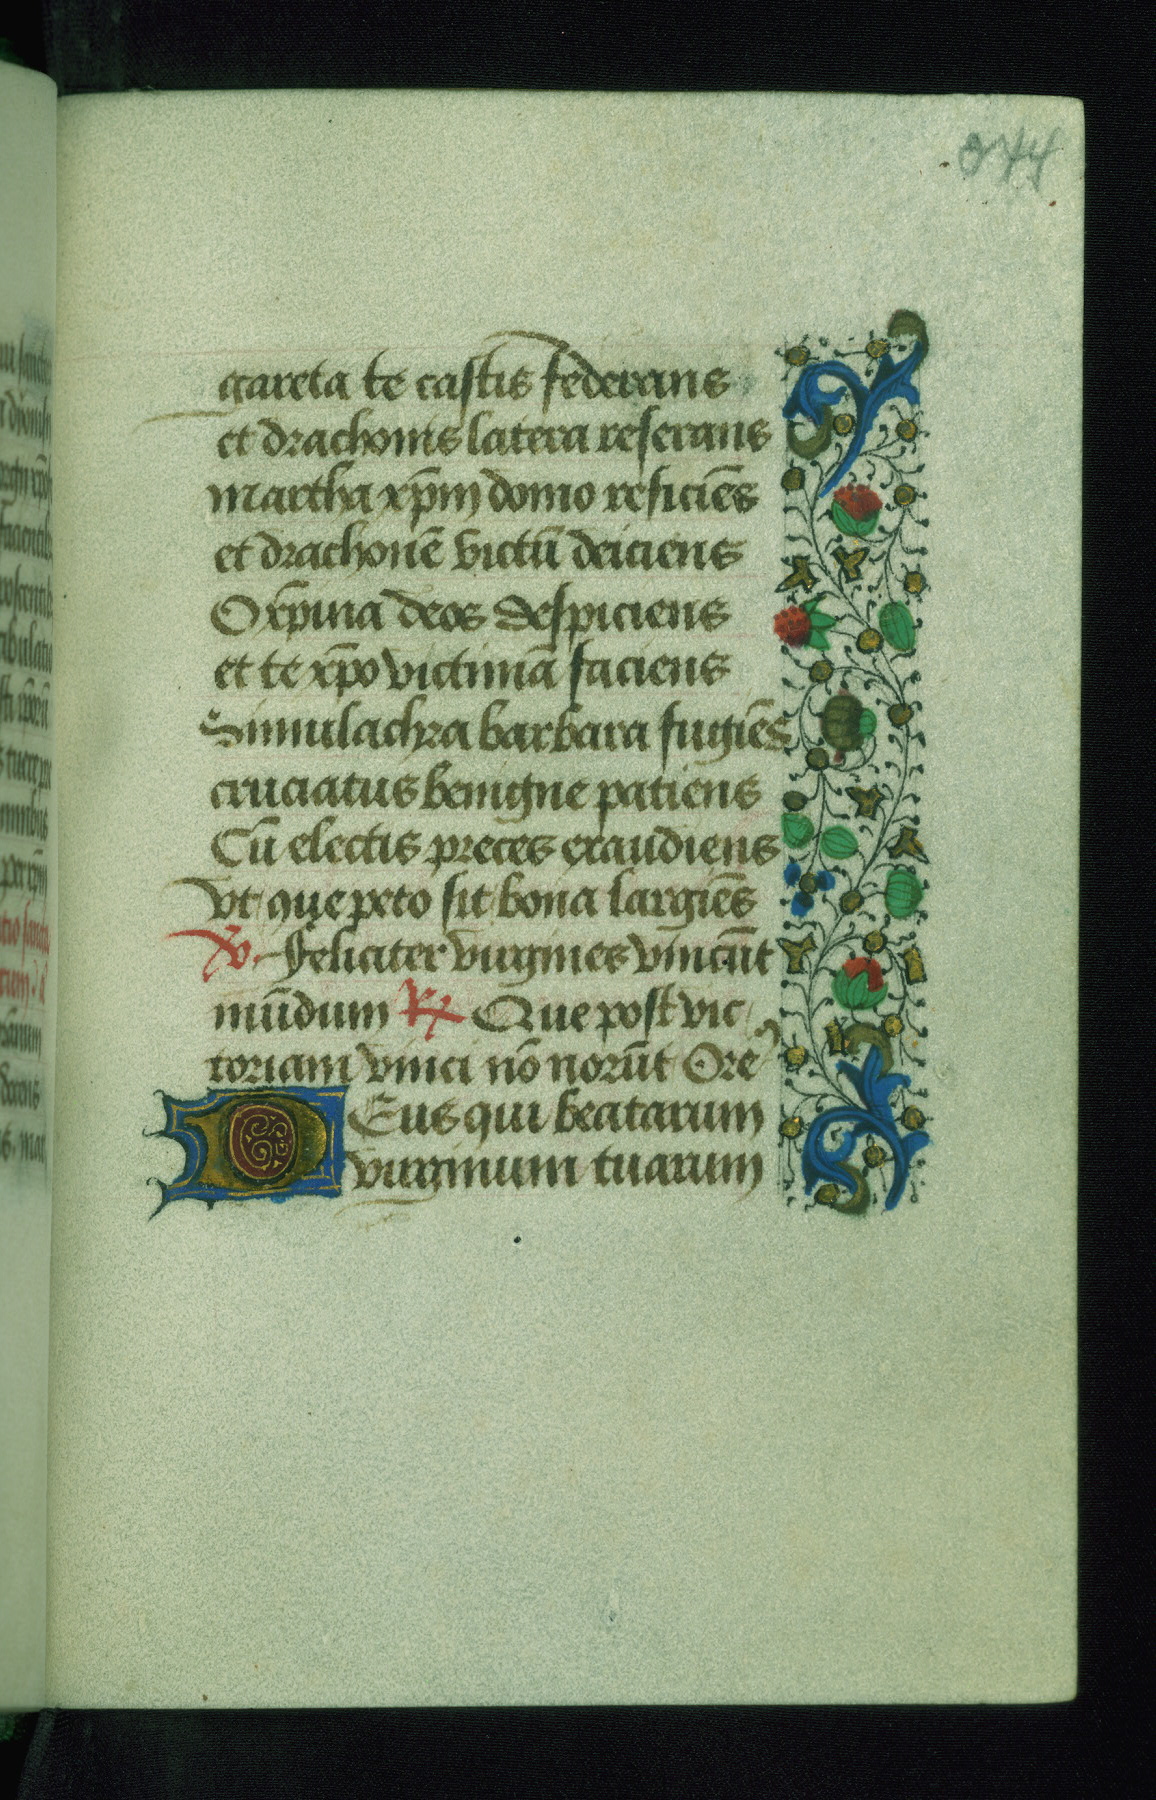 gareta te castis federans
et drachonis latera reserans
martha xp̄m domo reficiēs
et drachonē victū deiciens
O xp̄ina deos despiciens
et te xp̄o victimā faciens
Simulachra barbara fugiēs
cruciatus benigne patiens
Cū electis preces exaudiens
Vt que peto sit bona largiēs
V. Feliciter virgines vincūt
mūdum R Que post vic
toriam vinci nō norūt Ore
DEus qui beatarum
virginum tuarum